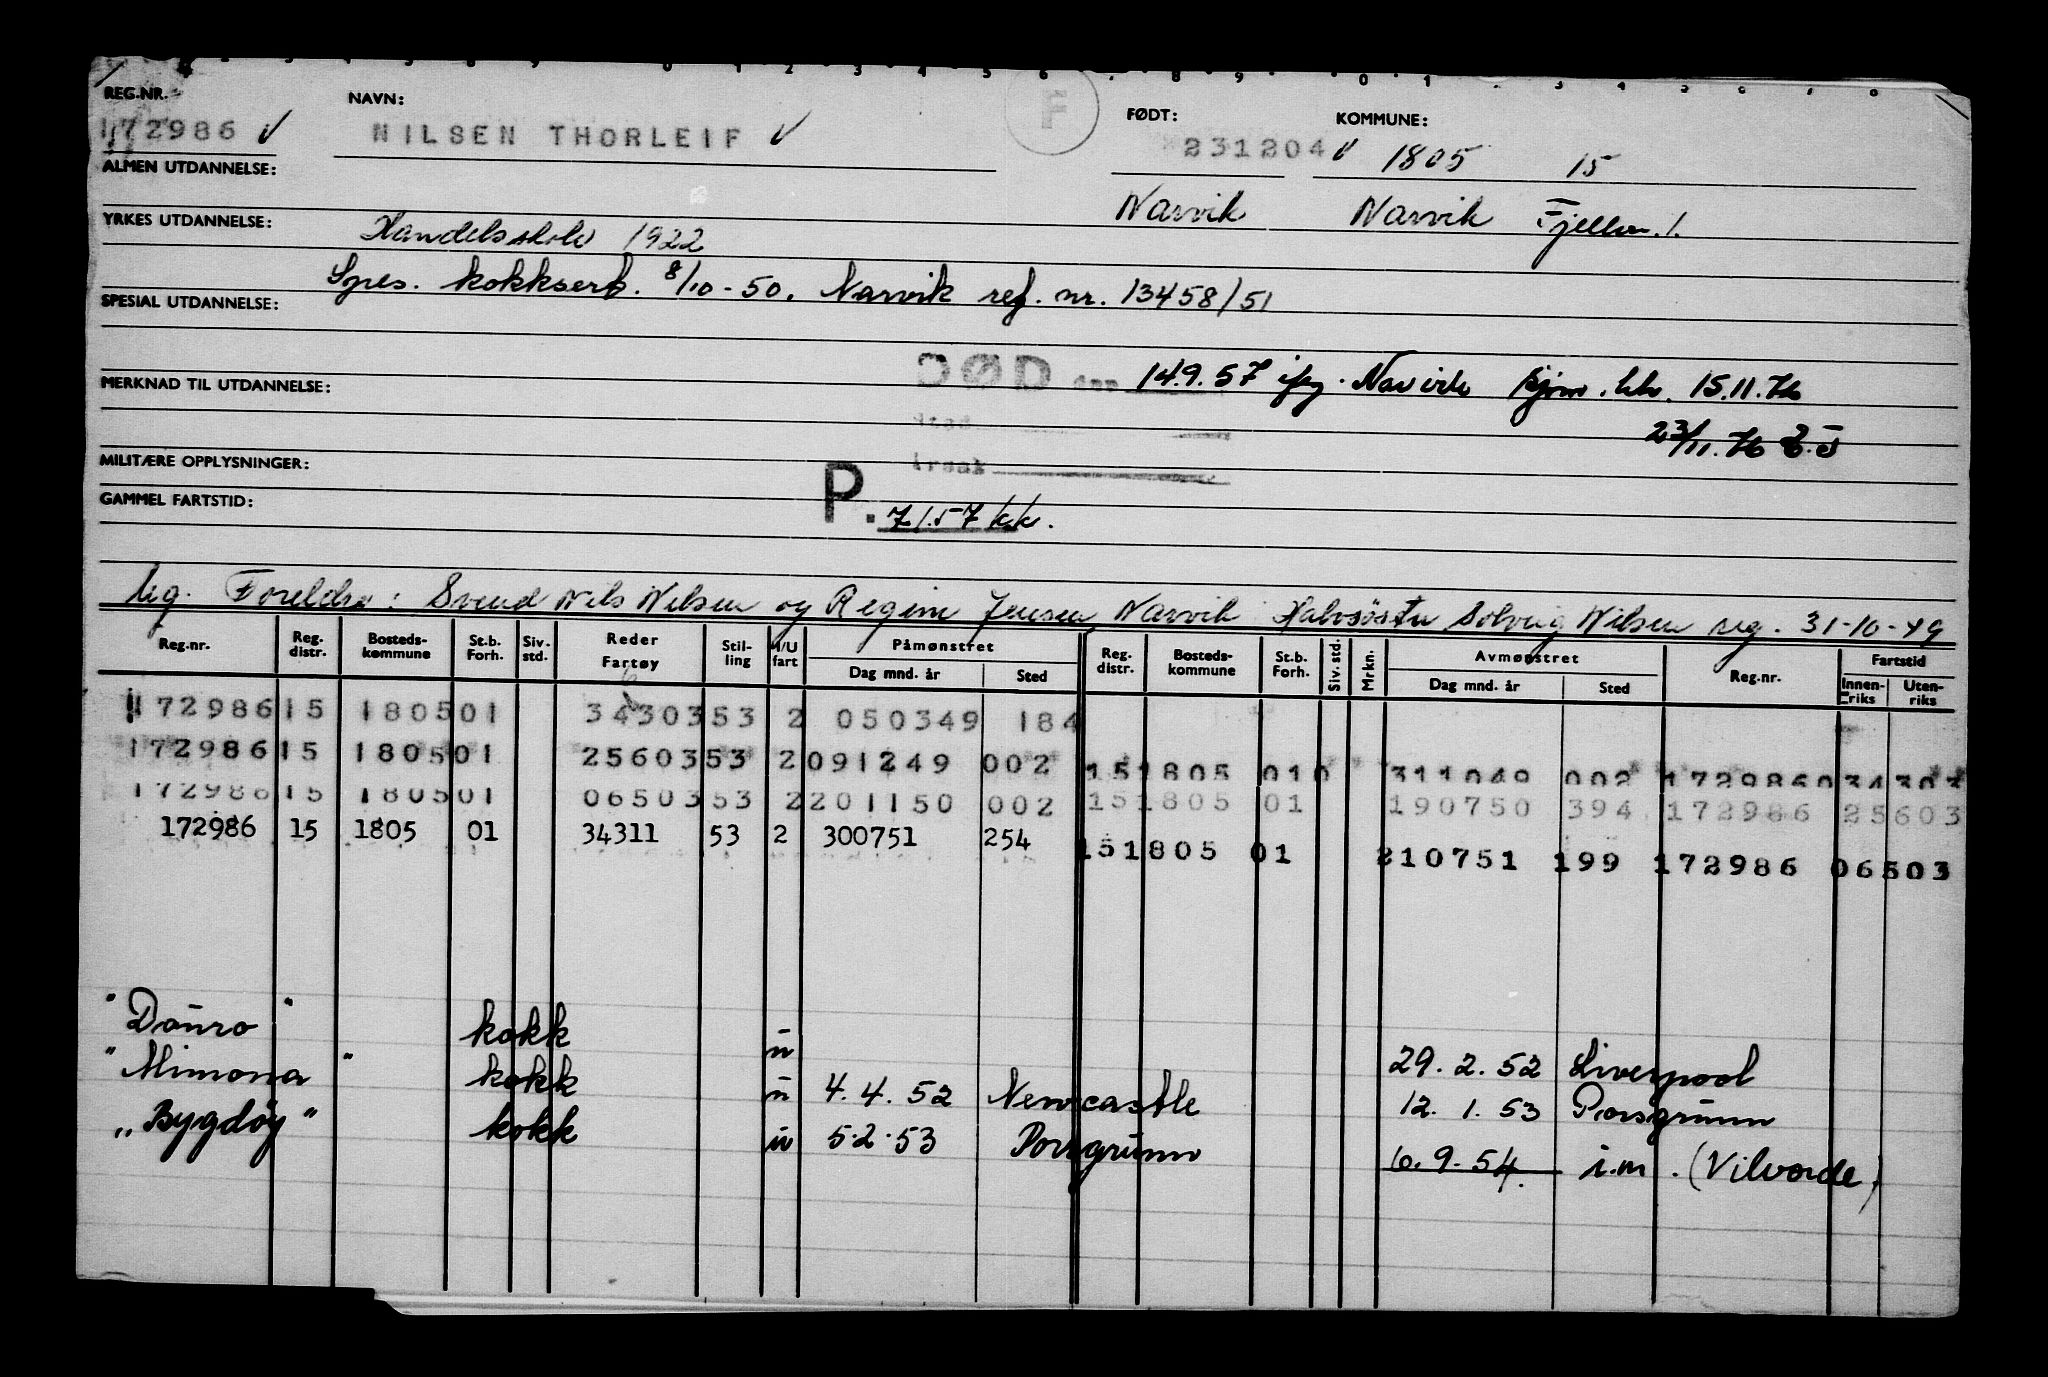 REG.NR. NAVN: F FØDT: KOMMUNE:
172986 NILSEN THORLEIF 231204 1805 15
ALMEN UTDANNELSE: Narvik Narvik Fjellv. 1.
YRKES UTDANNELSE: Handelsskole 1922
Spes. kokksert. 8/10-50. Narvik ref. nr. 13458/51
SPESIAL UTDANNELSE:
DØD den 14.9.57 ifg. Narvik 15.11.76
MERKNAD TIL UTDANNELSE:
Sted 23/11.76
MILITÆRE OPPLYSNINGER: Årsak
GAMMEL FARTSTID: P. 7/57 kk.
Ug. Foreldre: Svend Nils Nilsen og Regine Jensen, Narvik Halvsøster Solveig Nilsen reg. 31-10-49
Reg.nr. Reg. distr. Bosteds-kommune St.b. Forh. Siv. std. Reder Fartøy Stil-ling N/U fart Påmønstret Dag mnd. år Sted Reg. distr. Bosteds-kommune St.b. Forh. Siv. std. Mrkn. Avmønstret Dag mnd. år Sted Reg.nr. Fartstid Innen-riks Uten-riks
172986 15 1805 01 34303 53 2 050349 184
172986 15 1805 01 25603 53 2 091249 002 15 1805 010 311049 002 172986 034303
172986 15 1805 01 06503 53 2 201150 002 15 1805 01 190750 394 172986 25603
172986 15 1805 01 34311 53 2 300751 254 15 1805 01 210751 199 172986 06503
"Douro" kokk u 29.2.52 Liverpool
"Mimona" kokk u 4.4.52 Newcastle 12.1.53 Porsgrunn
"Bygdøy" kokk u 5.2.53 Porsgrunn 6.9.54. i.m. (Vilvorde)